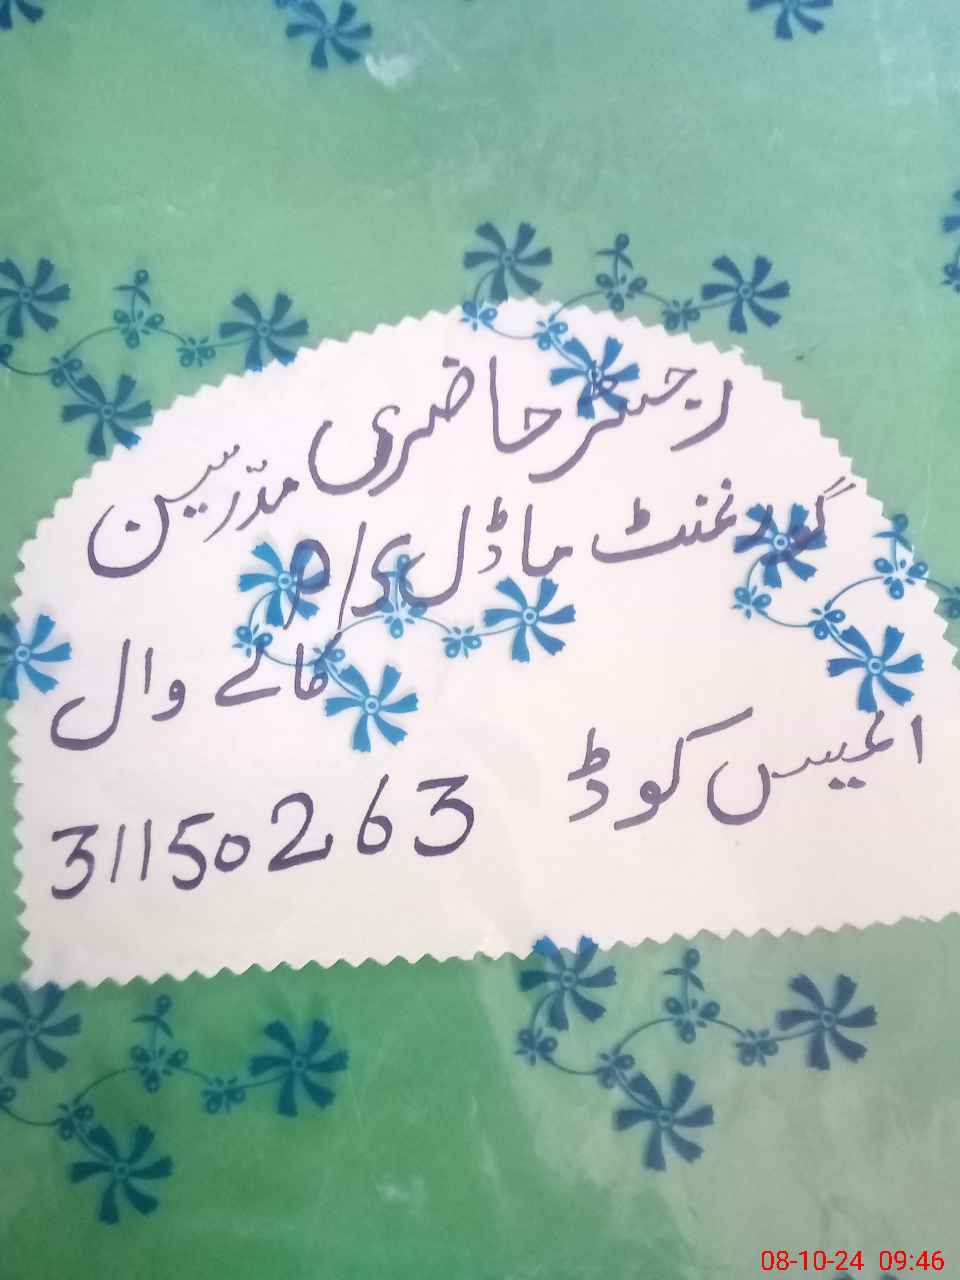 رجسٹر حاضری مدرّسین
گورنمنٹ ماڈل P/S
کالے وال
ایمیس کوڈ 31150263
08-10-24 09:46